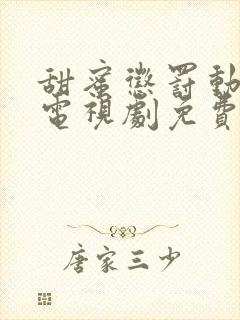 甜蜜懲罰動
電視劇免費
唐家三少